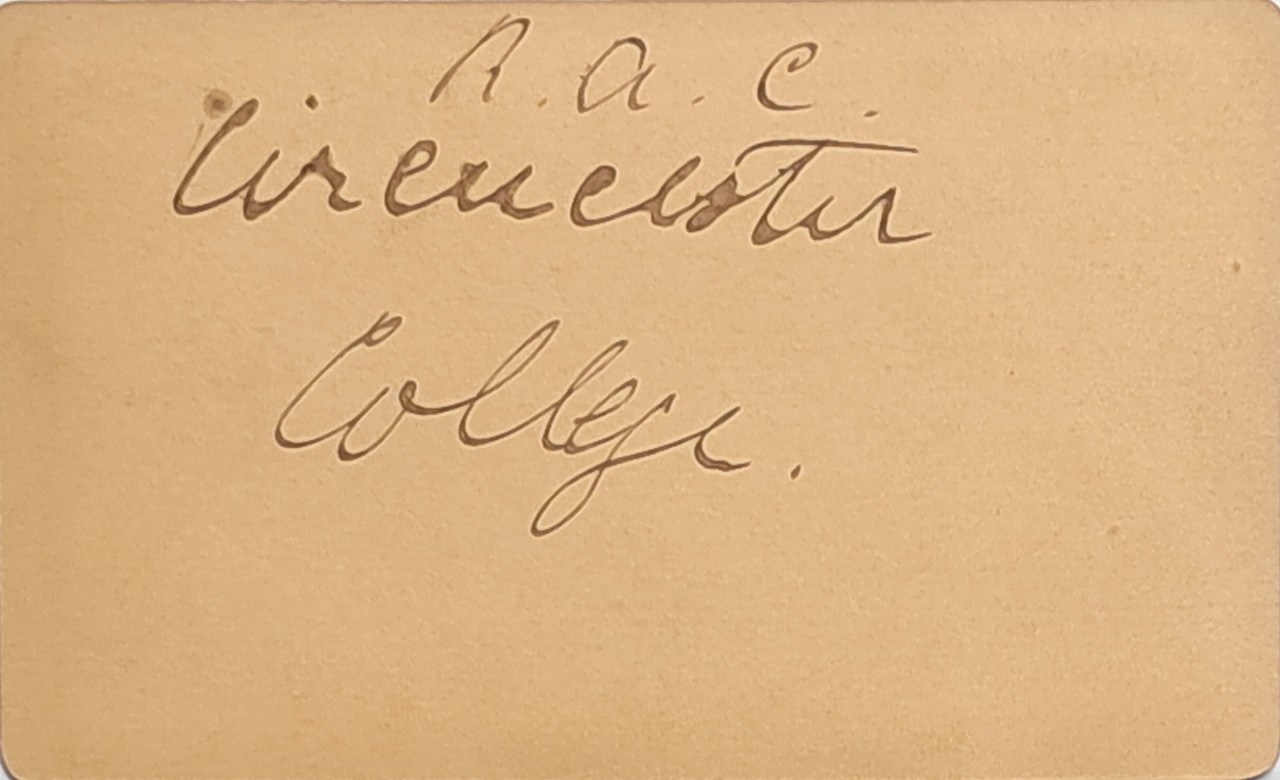 R. A. C.
Cirencester
College.